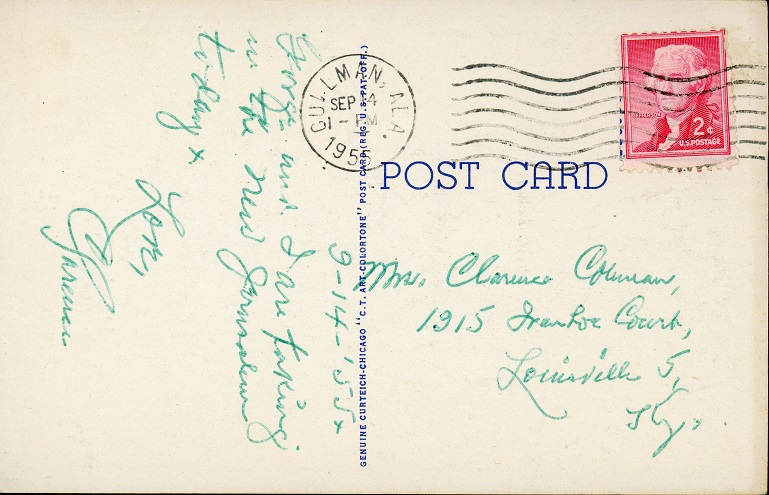 9-14-'55
and I are taking
in the New Jerusalem
today
Love,
Clarence
CULLMAN, ALA.
SEP 14
1 - PM
1955
JEFFERSON
2¢
U.S. POSTAGE
POST CARD
GENUINE CURTEICH-CHICAGO "C.T. ART-COLORTONE" POST CARD (REG. U.S. PAT. OFF.)
Mrs. Clarence Coleman,
1915 Ivanhoe Court,
Louisville 5,
Ky.